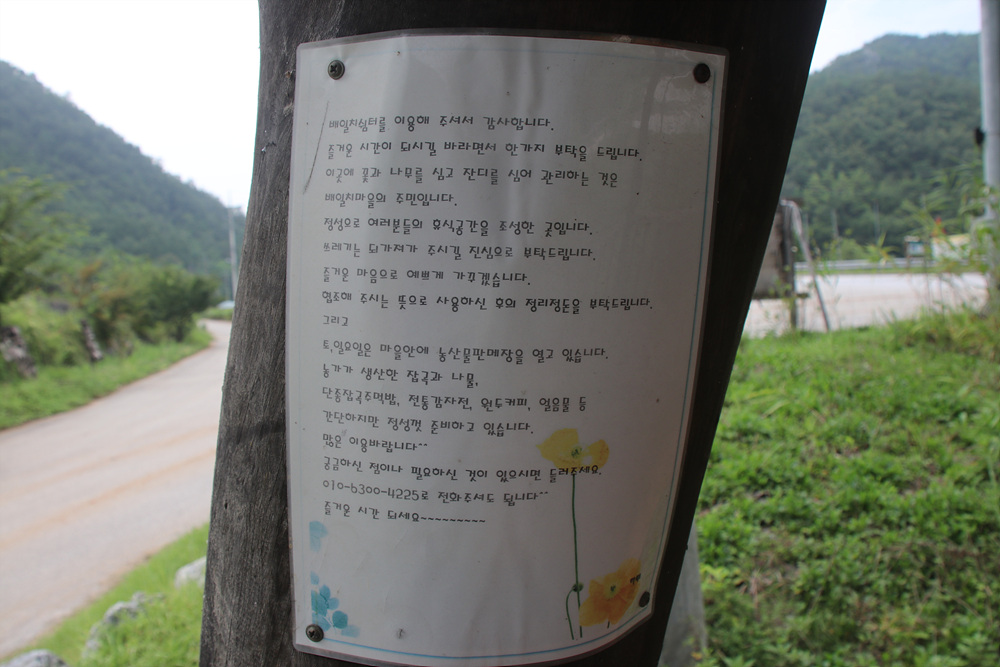 배일치쉼터를 이용해 주셔서 감사합니다.
즐거운 시간이 되시길 바라면서 한가지 부탁을 드립니다.
이곳에 꽃과 나무를 심고 잔디를 심어 관리하는 것은
배일치마을의 주민입니다.
정성으로 여러분들의 휴식공간을 조성한 곳입니다.
쓰레기는 되가져가 주시길 진심으로 부탁드립니다.
즐거운 마음으로 예쁘게 가꾸겠습니다.
협조해 주시는 뜻으로 사용하신 후의 정리정돈을 부탁드립니다.
그리고
토,일요일은 마을안에 농산물판매장을 열고 있습니다.
농가가 생산한 잡곡과 나물,
단종잡곡주먹밥, 전통감자전, 원두커피, 얼음물 등
간단하지만 정성껏 준비하고 있습니다.
많은 이용바랍니다^^
궁금하신 점이나 필요하신 것이 있으시면 들러주세요.
010-6300-4225로 전화주셔도 됩니다^^
즐거운 시간 되세요~~~~~~~~~